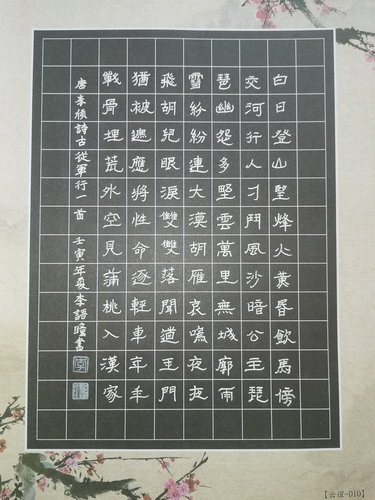 白日登山望烽火黃昏飲馬傍
交河行人刁鬥風沙暗公主琵
琶幽怨多野雲萬里無城廓雨
雪紛紛連大漠胡雁哀鳴夜夜
飛胡兒眼淚雙雙落聞道玉門
猶被遮應將性命逐輕車年年
戰骨埋荒外空見蒲桃入漢家
唐李頎詩古從軍行一首 壬寅年夏李語瞳書
【云谊-D10】